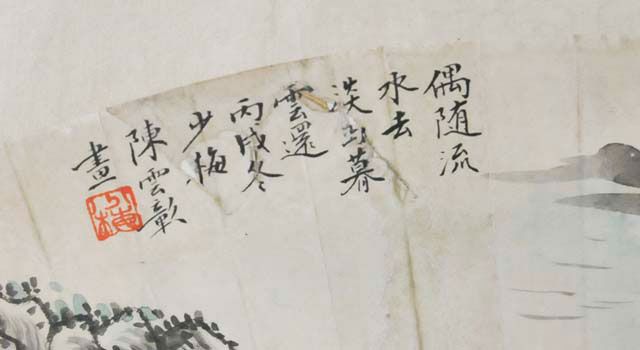 偶随流
水去
淡与暮
雲還
丙戌冬
少梅
陳雲彰
畫
少梅